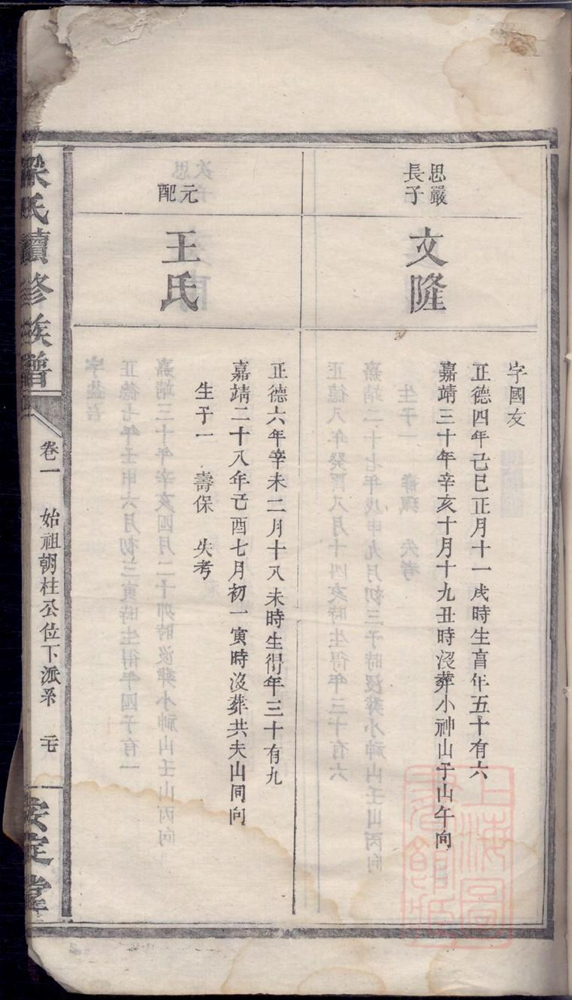 思嚴
長子
文隆
字國友
正德四年己巳正月十一戌時生享年五十有六
嘉靖三十年辛亥十月十九丑時沒葬小神山子山午向
元
配
王氏
正德六年辛未二月十八未時生得年三十有九
嘉靖二十八年己酉七月初一寅時沒葬共夫山同向
生子一 壽保 失考
梁氏續修族譜
卷一 始祖朝柱公位下派系
安定堂